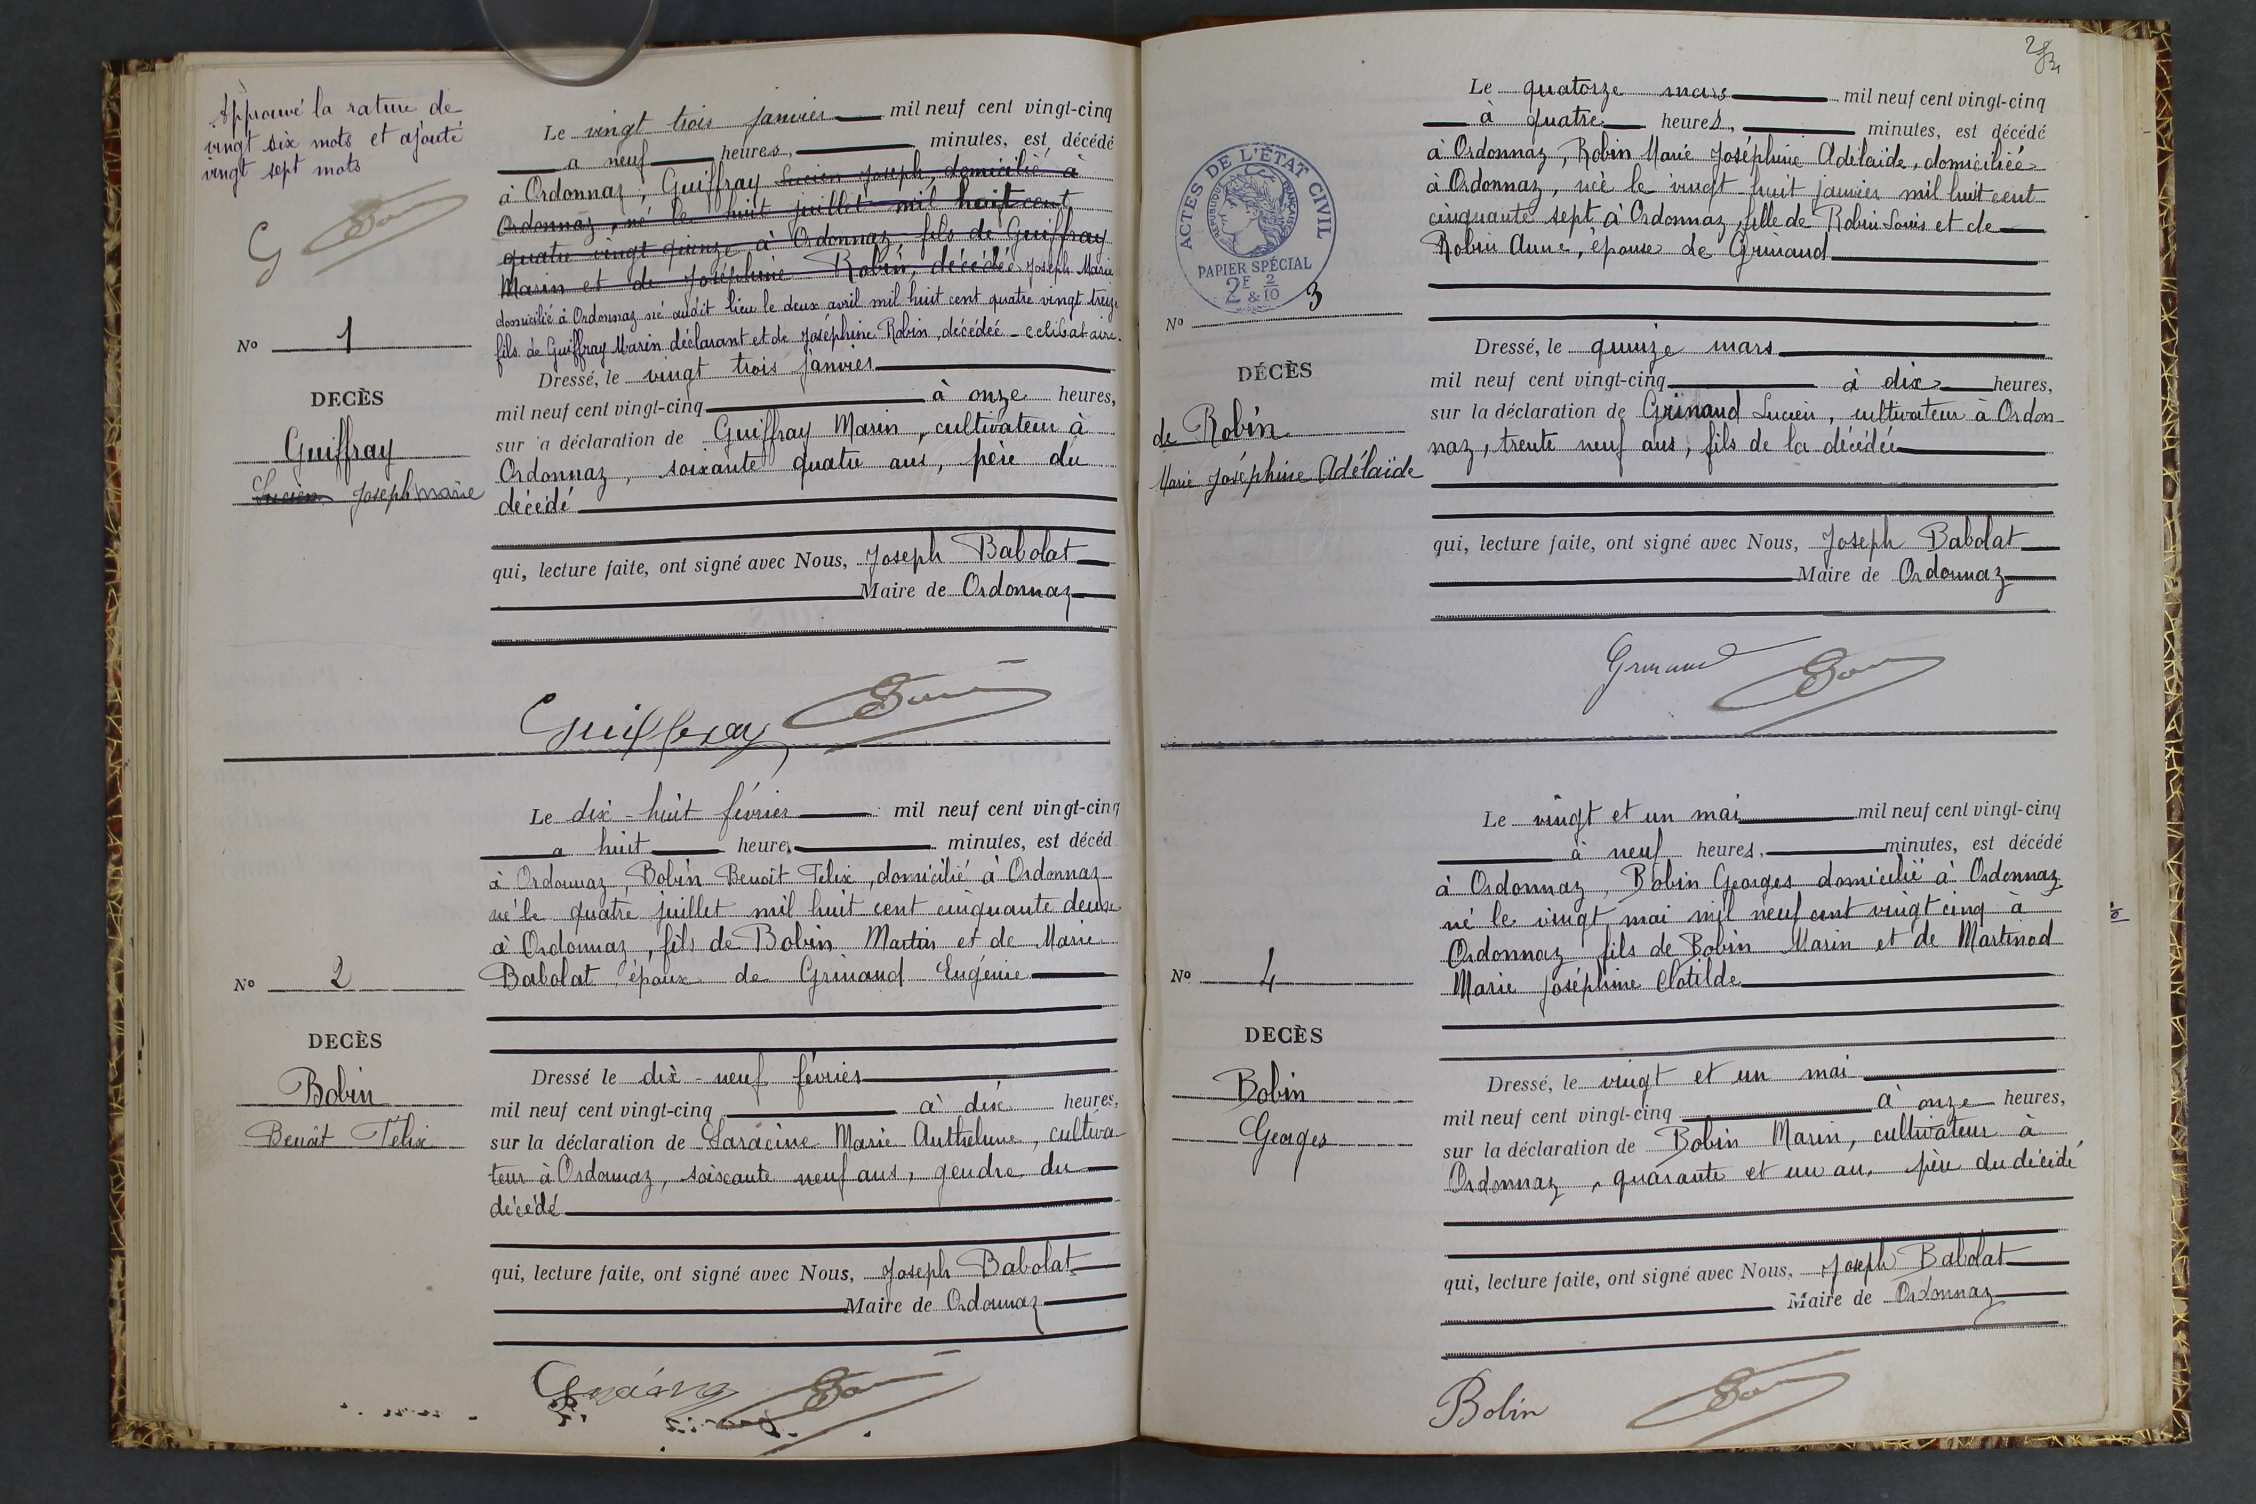 Approuvé la rature de
vingt six mots et ajouté
vingt sept mots
G
No 1
DECÈS
Guiffray
Lucien Joseph Marie
Le vingt trois janvier mil neuf cent vingt-cinq
a neuf heures, minutes, est décédé
à Ordonnaz, Guiffray Lucien Joseph, domicilié à
Ordonnaz, né le huit juillet mil huit cent
quatre vingt quinze à Ordonnaz, fils de Guiffray
Marin et de Joséphine Robin, décédée Joseph Marie
domicilié à Ordonnaz né audit lieu le deux avril mil huit cent quatre vingt treize
fils de Guiffray Marin déclarant et de Joséphine Robin, décédée - celibataire.
Dressé, le vingt trois janvier
mil neuf cent vingt-cinq à onze heures,
sur a déclaration de Guiffray Marin, cultivateur à
Ordonnaz, soixante quatre ans, père du
décédé
qui, lecture faite, ont signé avec Nous, Joseph Babolat
Maire de Ordonnaz
Guiffray
No 2
DECÈS
Bobin
Benoit Félix
Le dix-huit février mil neuf cent vingt-cinq
a huit heures, minutes, est décéd
à Ordonnaz, Bobin Benoit Félix, domicilié à Ordonnaz
né le quatre juillet mil huit cent cinquante deux
à Ordonnaz, fils de Bobin Martin et de Marie
Babolat époux de Grinand Eugénie
Dressé le dix-neuf février
mil neuf cent vingt-cinq à dix heures,
sur la déclaration de Saracine Marie Anthelme, cultiva
teur à Ordonnaz, soixante neuf ans, gendre du
décédé
qui, lecture faite, ont signé avec Nous, Joseph Babolat
Maire de Ordonnaz
ACTES DE L'ÉTAT CIVIL
RÉPUBLIQUE FRANÇAISE
PAPIER SPÉCIAL
2F & 2/10
No 3
DÉCÈS
de Robin
Marie Joséphine Adélaïde
Le quatorze mars mil neuf cent vingt-cinq
à quatre heures, minutes, est décédé
à Ordonnaz, Robin Marie Joséphine Adélaïde, domiciliée
à Ordonnaz, née le vingt-huit janvier mil huit cent
cinquante sept à Ordonnaz, fille de Robin Louis et de
Robin Anne, épouse de Grinand
Dressé, le quinze mars
mil neuf cent vingt-cinq à dix heures,
sur la déclaration de Grinand Lucien, cultivateur à Ordon
naz, trente neuf ans, fils de la décédée
qui, lecture faite, ont signé avec Nous, Joseph Babolat
Maire de Ordonnaz
Grinand
No 4
DECÈS
Bobin
Georges
Le vingt et un mai mil neuf cent vingt-cinq
à neuf heures, minutes, est décédé
à Ordonnaz, Bobin Georges domicilié à Ordonnaz
né le vingt mai mil neuf cent vingt cinq à
Ordonnaz fils de Bobin Marin et de Martinod
Marie Joséphine Clotilde
Dressé, le vingt et un mai
mil neuf cent vingt-cinq à onze heures,
sur la déclaration de Bobin Marin, cultivateur à
Ordonnaz, quarante et un an, père du décédé
qui, lecture faite, ont signé avec Nous, Joseph Babolat
Maire de Ordonnaz
Bobin